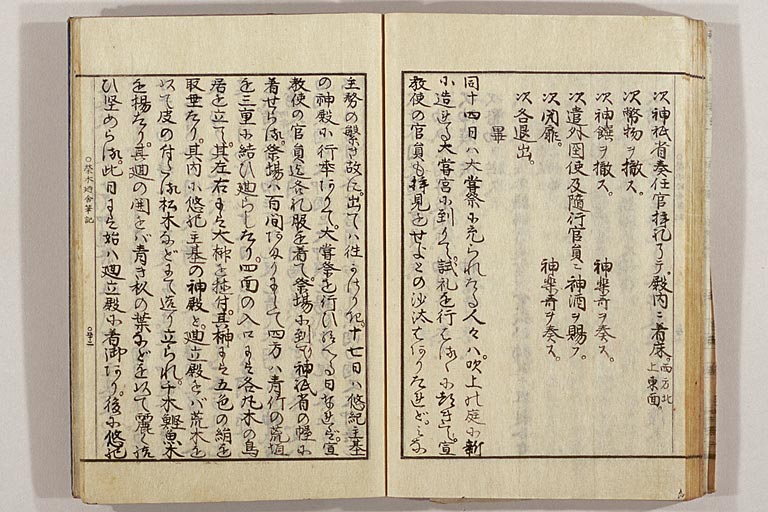 次神祇省奏任官拝礼了テ、殿内ニ着床。西方北上東面。
次幣物ヲ撤ス。
次神饌ヲ撤ス。 神楽奇ヲ奏ス。
次遣外国使及隨行官員ニ神酒ヲ賜フ。
次閉扉。 神楽奇ヲ奏ス。
次各退出。
畢
同十四日ハ大嘗祭ニ充られたる人々ハ、吹上の庭に新
に造せる大嘗宮に到りて、試礼を行
教使の官員も拝見をせよとの沙汰
主務の繁き故に、出てハ往 十七日ハ悠紀主基
の神殿に行幸ありて、大嘗祭を行ひ 日なれハ、宣
教使の官員 各礼服を着て祭場に到り、神祇省の幄に
着せらる。祭場ハ百間 四方ハ青竹の荒垣
を三重に結ひ廻らしたり。四面の入口にハ各丸木の鳥
居を立て、其左右にハ大榊を 付、其榊にハ五色の絹を
取垂たり。其内に悠紀主基の神殿と、廻立殿とハ荒木を
以て皮の付たる松木 造り立られ、千木鰹魚木
を揚たり。其廻の囲をハ青き杦の葉 を以て麗く
ひ堅めらる。此日にハ始ハ廻立殿に着御あり。後に悠紀
○栄木廼舎筆記